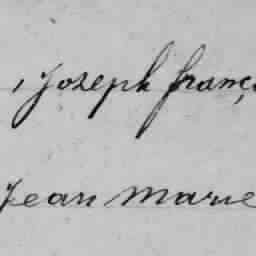 , Joseph franç
Jean Marie